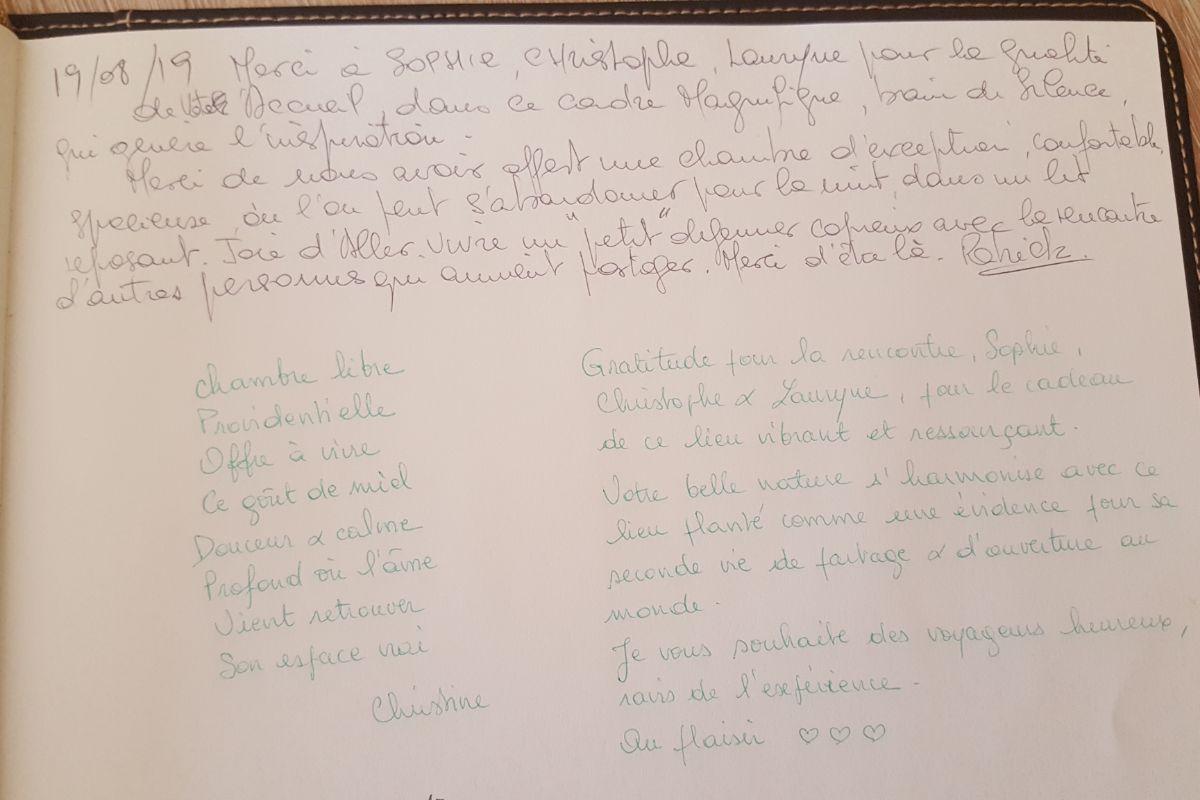 19/08/19 Merci à SOPHIE, CHristophe, Lauryne pour la qualité
de Votre Accueil, dans ce cadre Magnifique, bain de Silence,
qui génère l'inspiration.
Merci de nous avoir offert une chambre d'exception, confortable,
spacieuse, où l'on peut s'abandonner pour la nuit, dans un lit
reposant. Joie d'Aller vivre un "petit" déjeuner copieux avec la rencontre
d'autres personnes qui aiment partager. Merci d'être là. Patrick.
Chambre libre
Providentielle
Offre à vivre
Ce goût de miel
Douceur & calme
Profond où l'âme
Vient retrouver
Son espace vrai
Christine
Gratitude pour la rencontre, Sophie,
Christophe & Lauryne, pour le cadeau
de ce lieu vibrant et ressourçant.
Votre belle nature s'harmonise avec ce
lieu planté comme une évidence pour sa
seconde vie de partage & d'ouverture au
monde.
Je vous souhaite des voyageurs heureux,
ravis de l'expérience.
Au plaisir ♡ ♡ ♡